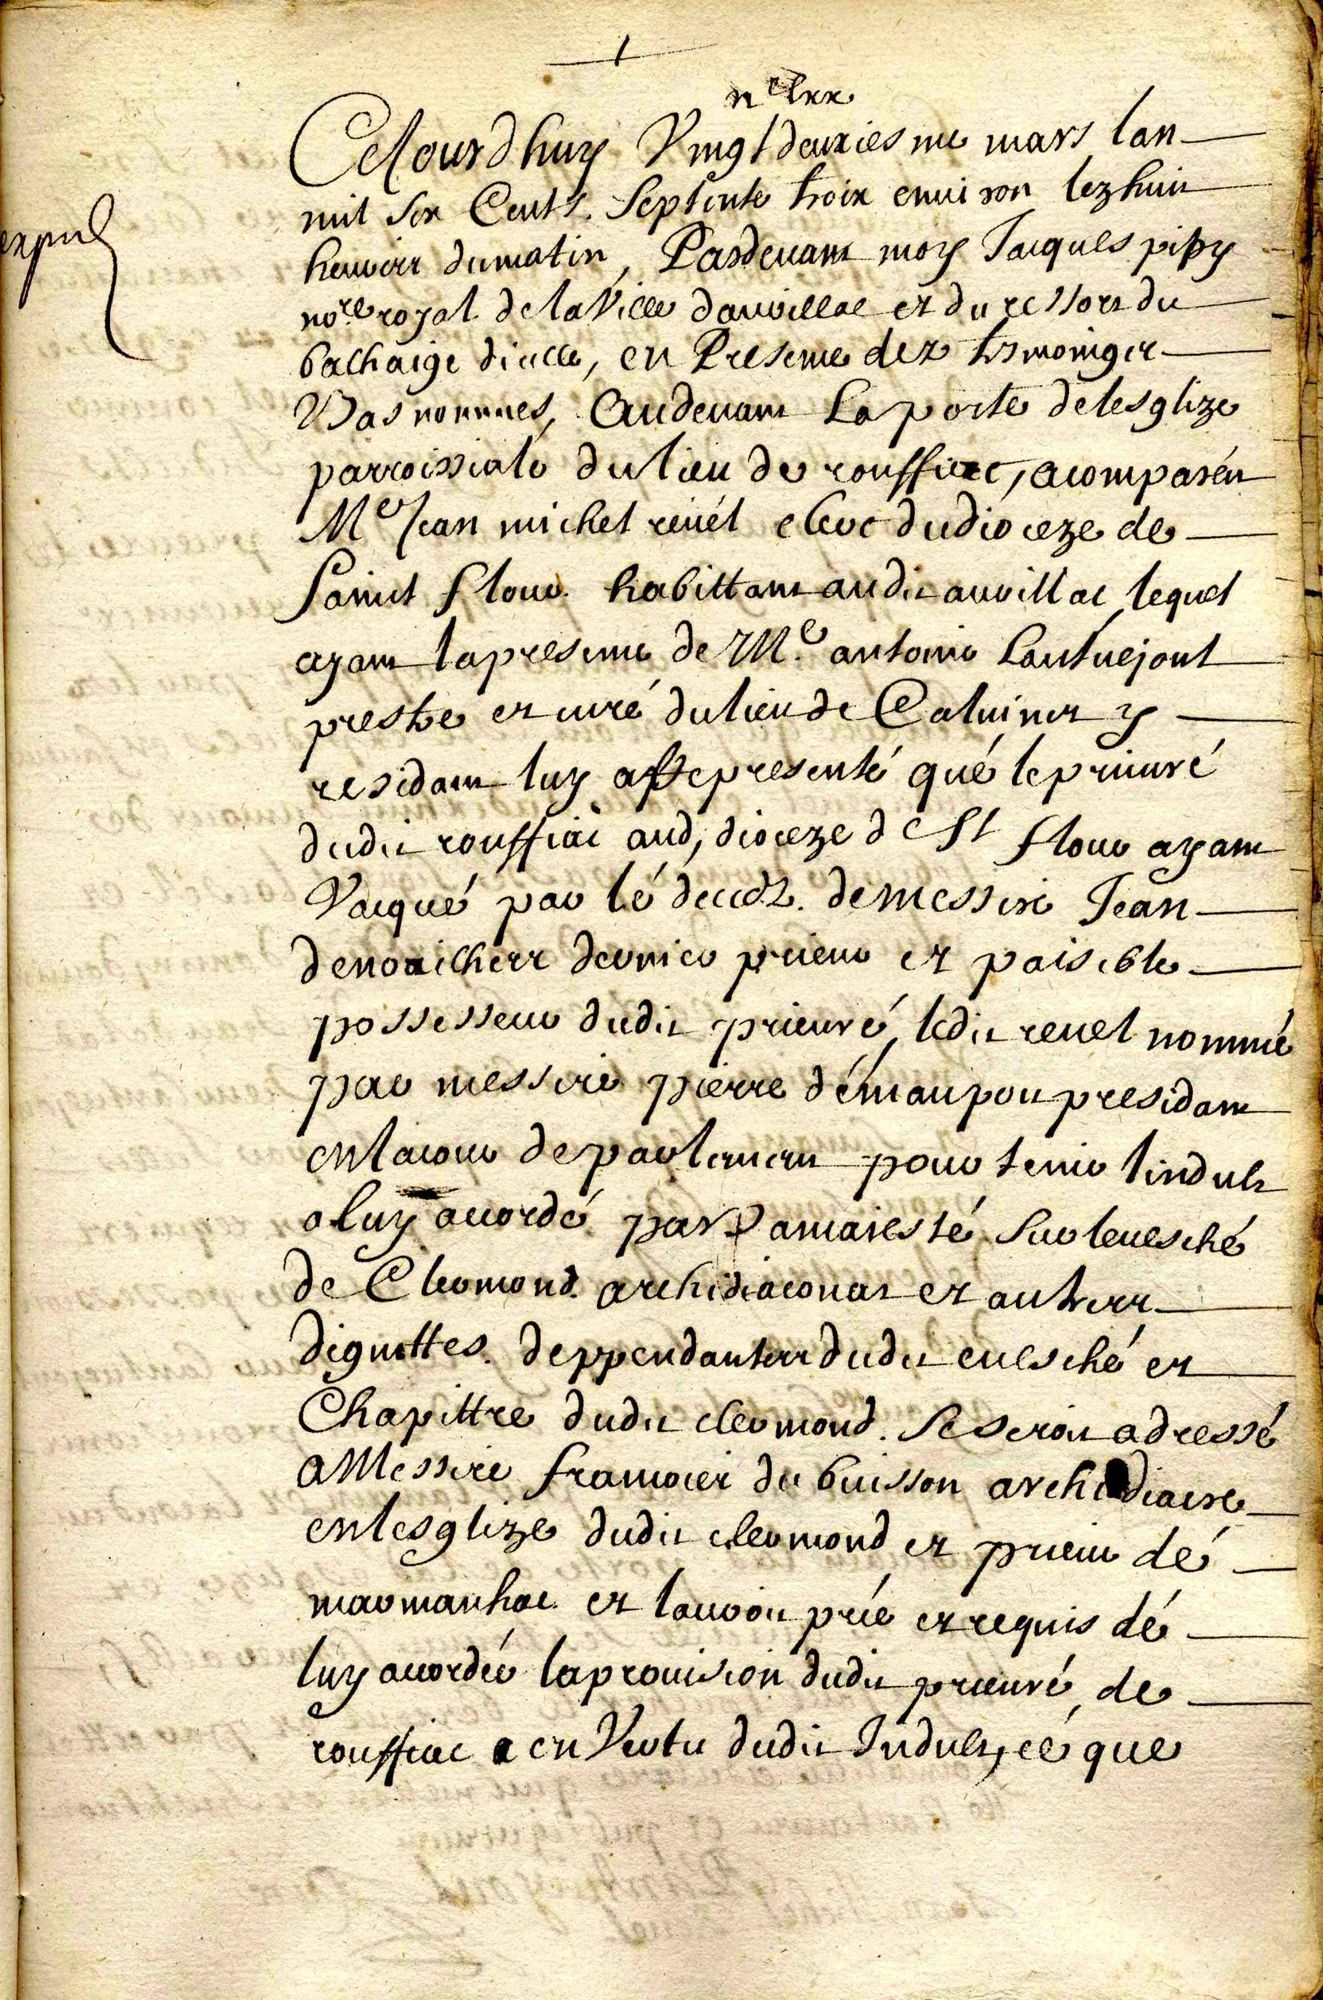 1
n^e lxx
Cejourdhuy Vingt deuxiesme mars lan
mil six Cents Septente trois environ lez huit
heures dumatin, Pardevant moy Jacques pipy
no.re royal delaVille daurillac et du ressort du
balhaige dicelle, en Presence dez tesmoingtz
Bas nommes, Audevant La porte delesglize
parroissiale du lieu de rouffiac, acomparéu
M^e Jean michel revél clerc dudioceze de
Saint flour habittant audit aurillac lequel
ayant lapresence de M^e. antoine Lantuejoul
prestre et curé dulieu de Calvinet y
residant luy a representé qué leprieuré
dudit rouffiac aud, dioceze de St flour ayant
Vacqué par lé deced demessire Jean
denoailhes dernier prieur et paisible
possesseur dudit prieuré, ledit revel nommé
par messire pierre démaupou presidant
enlacour deparlement pour tenir lindult
aluy acordé par Samaiesté Sur levesché
de Clermond archidiaconat et autres
dignittes deppendantes dudit evesché et
Chapittre dudit clermond Seseroit adressé
aMessire francoies du buisson archidiacre
enlesglize dudit clermond et prieur dé
marmanhac et lauroit prié et requis dé
luy acordér laprovision dudit prieuré de
rouffiac en Vertu dudit Indult, cé que